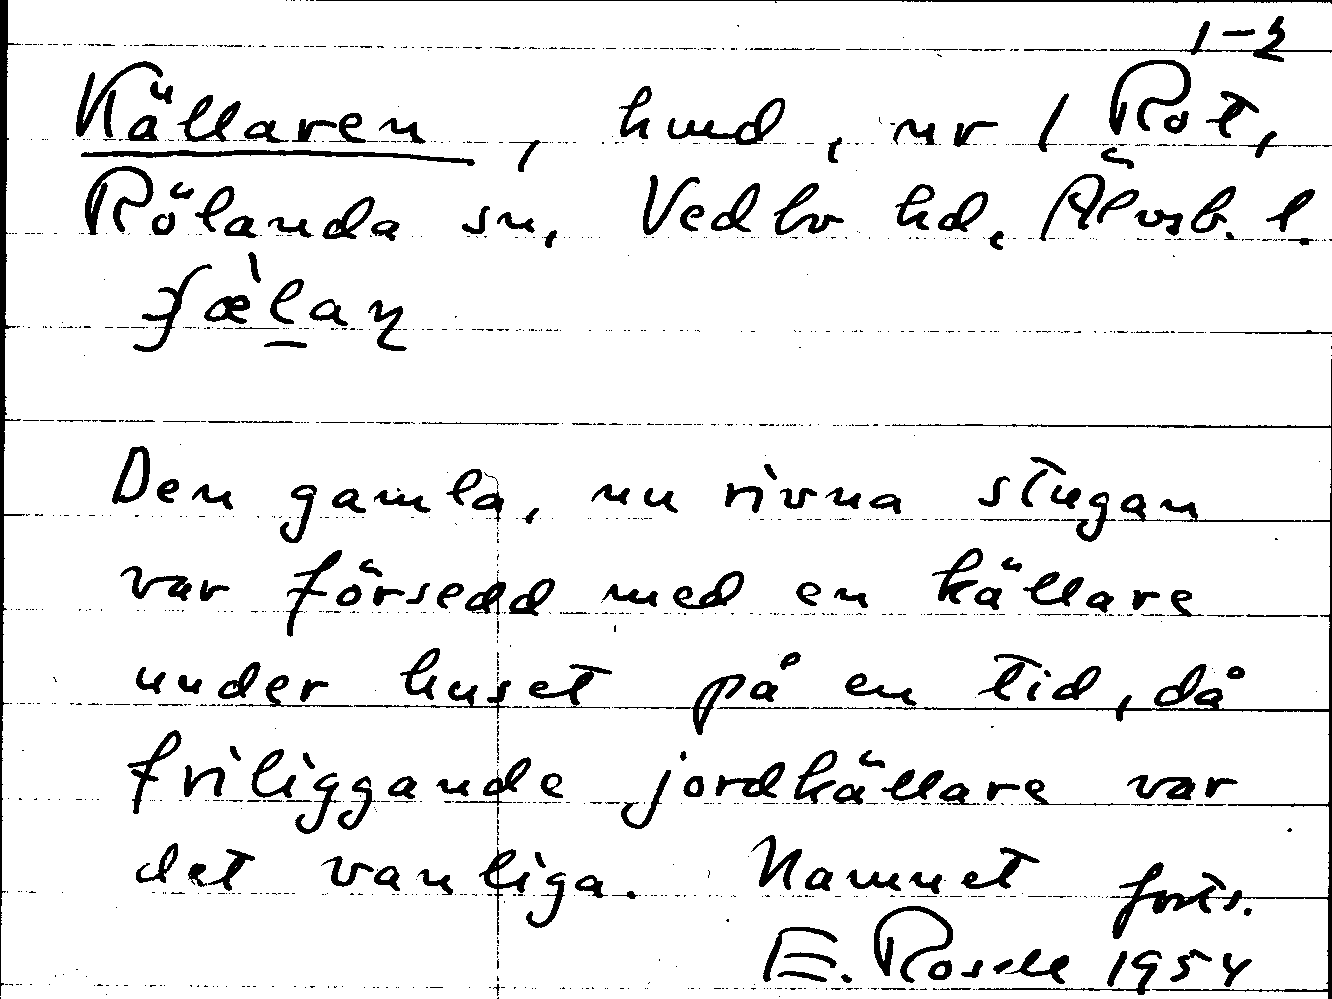 1-2
Källaren, hmd, nr 1 Röt,
Rölanda sn, Vedbo hd, Älvsb. l.
Den gamla, nu rivna stugan
var försedd med en källare
under huset på en tid, då
friliggande jordkällare var
det vanliga. Namnet forts.
E. Rosell 1954